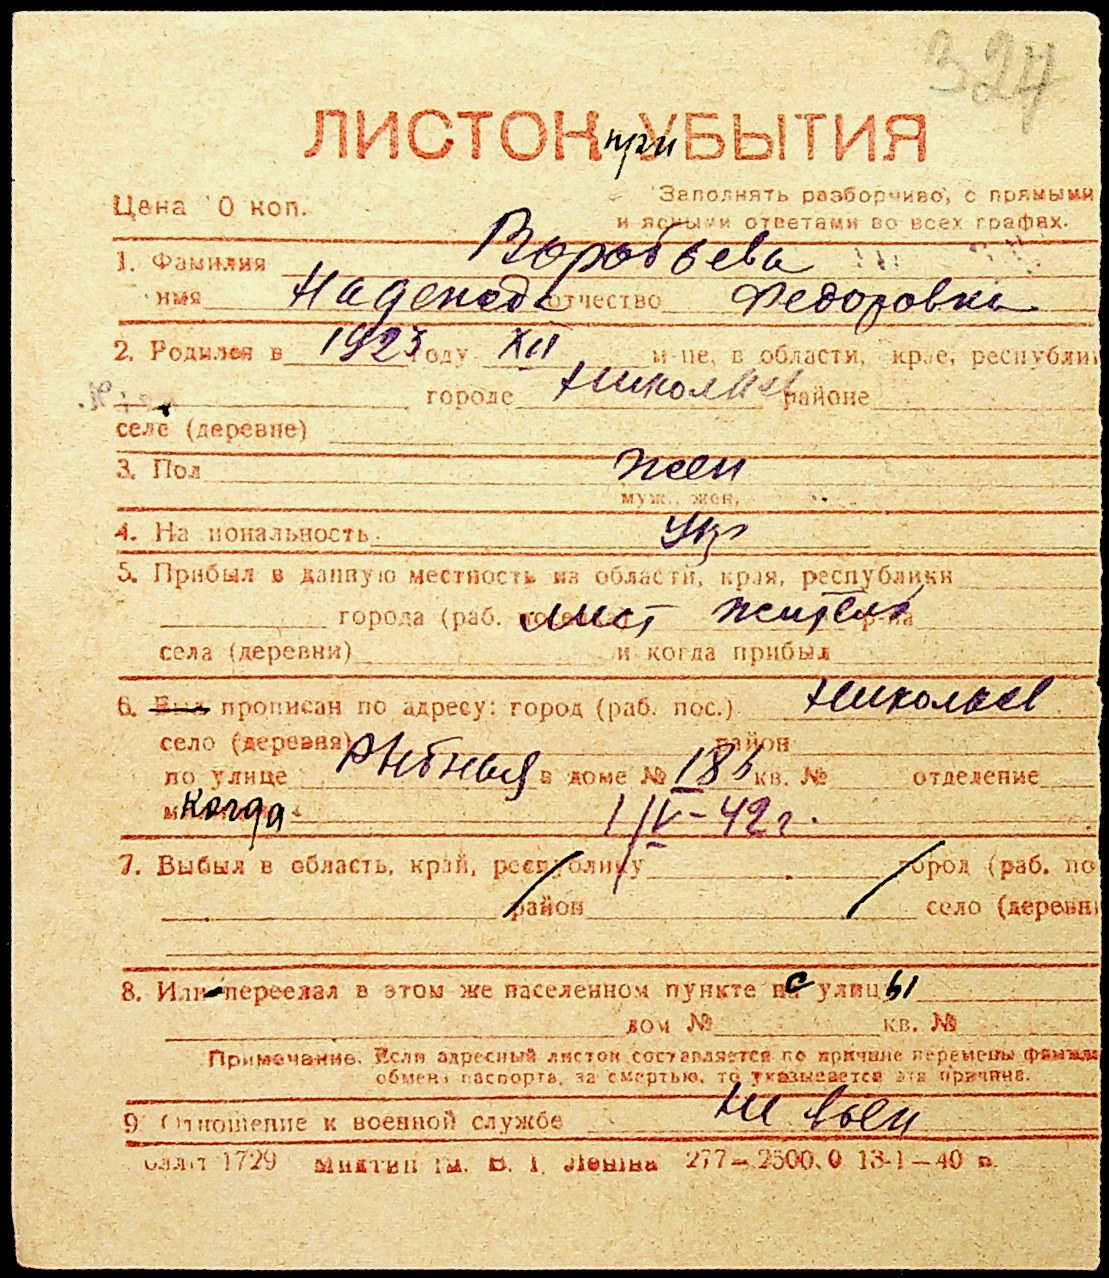 324
ЛИСТОК при УБЫТИЯ
Цена 10 коп.
Заполнять разборчиво, с прямыми
и ясными ответами во всех графах.
1. Фамилия Воробьева
имя Надежда отчество Федоровна
2. Родился в 1923 году XII м-це, в области, крае, республи
городе Николаев районе
селе (деревне)
3. Пол жен
муж., жен.
4. Национальность укр
5. Прибыл в данную местность из области, края, республики
города (раб. поселка) мест житель р-на
села (деревни) и когда прибыл
6. Был прописан по адресу: город (раб. пос.) Николаев
село (деревня) район
по улице в доме № 183 кв. № отделение
когда 1/IV-42 г.
7. Выбыл в область, край, республику город (раб. по
район село (деревн
8. Или переехал в этом же населенном пункте с улицы
дом № кв. №
Примечание. Если адресный листок составляется по причине перемены фамил
обмена паспорта, за смертью, то указывается эта причина.
9. Отношение к военной службе не воен
1729 ім. В. І. Леніна 277—2500.0 13-1—40 п.